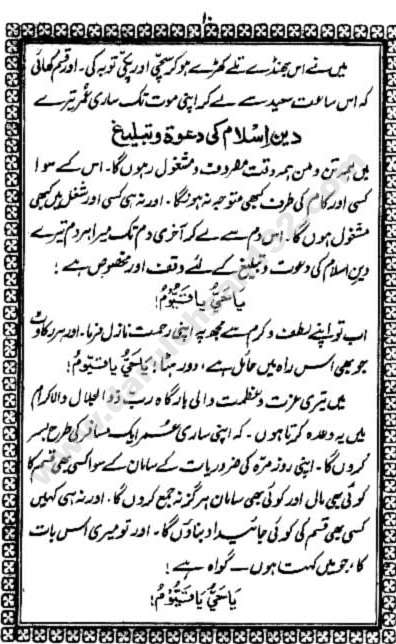 ۱۰
میں نے اس جھنڈے تلے کھڑے ہو کر سچی اور پکی توبہ کی۔ اور قسم کھائی
کہ اس ساعت سعید سے لے کر اپنی موت تک ساری عمر تیرے
دین اسلام کی دعوۃ و تبلیغ
میں ہمہ تن و من ہمہ وقت مصروف و مشغول رہوں گا۔ اس کے سوا
کسی اور کام کی طرف کبھی متوجہ نہ ہونگا۔ اور نہ ہی کسی اور شغل میں کبھی
مشغول ہوں گا۔ اس دم سے لے کر آخری دم تک میرا ہر دم تیرے
دین اسلام کی دعوت و تبلیغ کے لئے وقف اور مخصوص ہے!
یَا حَیُّ یَا قَیُّوْمُ!
اب تو اپنے لطف و کرم سے مجھ پہ اپنی رحمت نازل فرما۔ اور ہر رکاوٹ
جو بھی اس راہ میں حائل ہے، دور ہٹا! یَا حَیُّ یَا قَیُّوْمُ!
میں تیری عزت و عظمت والی بارگاہ رب ذوالجلال والاکرام
میں یہ وعدہ کرتا ہوں۔ کہ اپنی ساری عمر ایک مسافر کی طرح بسر
کروں گا۔ اپنی روز مرہ کی ضروریات کے سامان کے سوا کسی بھی قسم کا
کوئی بھی مال اور کوئی بھی سامان ہرگز نہ جمع کروں گا۔ اور نہ ہی کہیں
کسی بھی قسم کی کوئی جائیداد بناؤں گا۔ اور تو میری اس بات
کا، جو میں کہتا ہوں۔ گواہ ہے!
یَا حَیُّ یَا قَیُّوْمُ!